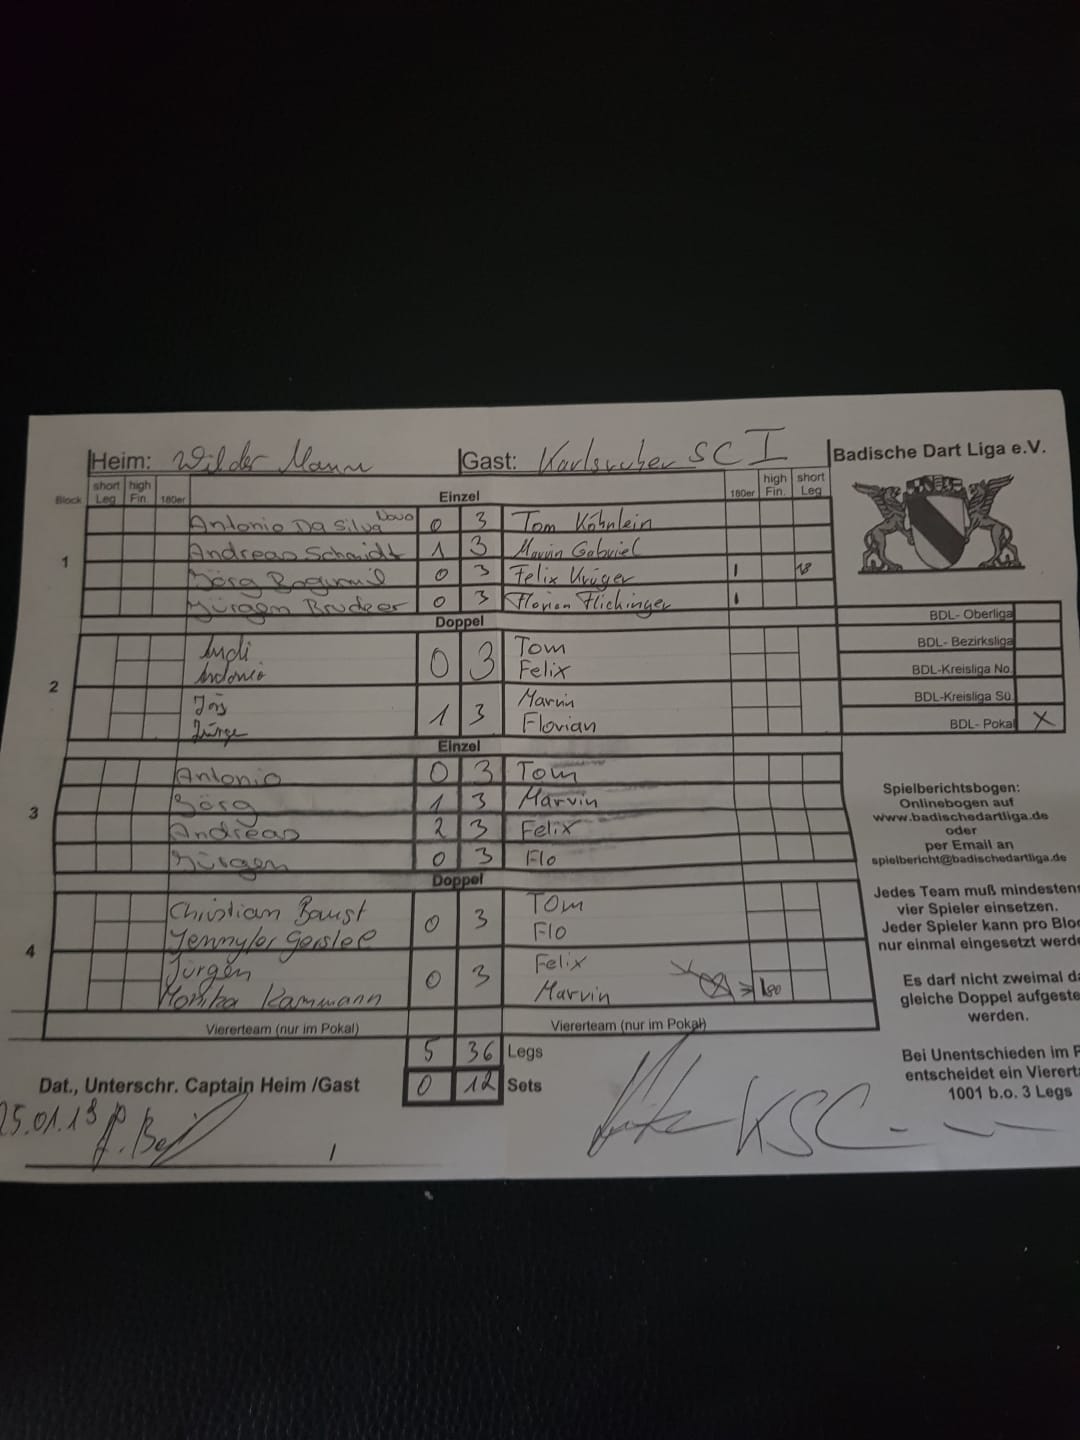 Heim: Wilder Mann Gast: Karlsruher SC I Badische Dart Liga e.V.
Block short Leg high Fin. 180er Einzel 180er high Fin. short Leg
1
Antonio Da Silva Novo 0 3 Tom Köhnlein
Andreas Schmidt 1 3 Marvin Gabriel
Jörg Bogumil 0 3 Felix Krüger 1 18
Jürgen Brudeer 0 3 Florian Flichinger 1
Doppel
2
Andi
Antonio
0 3
Tom
Felix
Jörg
Jürge
1 3
Marvin
Florian
BDL- Oberliga
BDL- Bezirksliga
BDL-Kreisliga No.
BDL-Kreisliga Sü.
BDL- Pokal X
Einzel
3
Antonio 0 3 Tom
Jörg 1 3 Marvin
Andreas 2 3 Felix
Jürgen 0 3 Flo
Doppel
4
Christian Baust
0 3
Tom
Flo
Jürgen
Monika Kammann
0 3
Felix
Marvin
180
Viererteam (nur im Pokal) Viererteam (nur im Pokal)
5 36 Legs
0 12 Sets
Dat., Unterschr. Captain Heim /Gast
25.01.19
KSC
Spielberichtsbogen:
Onlinebogen auf
www.badischedartliga.de
oder
per Email an
spielbericht@badischedartliga.de
Jedes Team muß mindestens
vier Spieler einsetzen.
Jeder Spieler kann pro Bloc
nur einmal eingesetzt werde
Es darf nicht zweimal da
gleiche Doppel aufgeste
werden.
Bei Unentschieden im P
entscheidet ein Vierert
1001 b.o. 3 Legs